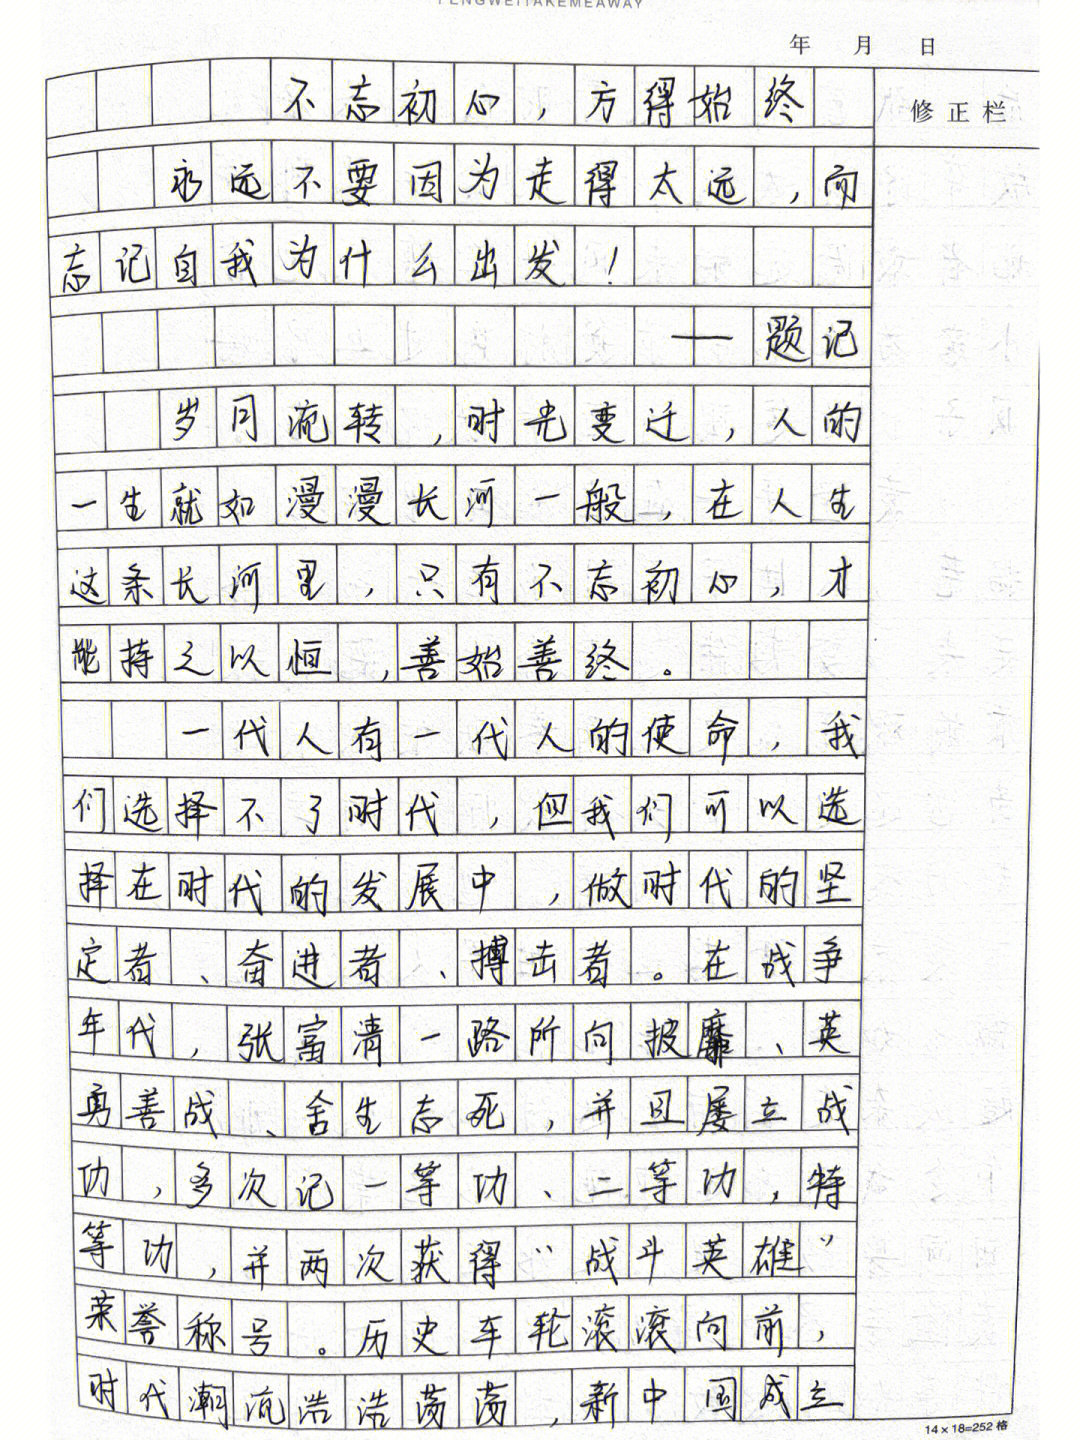 FENGWEITAKEMEAWAY
年 月 日
不忘初心，方得始终
修正栏
永远不要因为走得太远，而
忘记自我为什么出发！
——题记
岁月流转，时光变迁，人的
一生就如漫漫长河一般，在人生
这条长河里，只有不忘初心，才
能持之以恒，善始善终。
一代人有一代人的使命，我
们选择不了时代，但我们可以选
择在时代的发展中，做时代的坚
定者、奋进者、搏击者。在战争
年代，张富清一路所向披靡、英
勇善战、舍生忘死，并且屡立战
功，多次记一等功、二等功，特
等功，并两次获得“战斗英雄”
荣誉称号。历史车轮滚滚向前，
时代潮流浩浩荡荡，新中国成立
14×18=252格